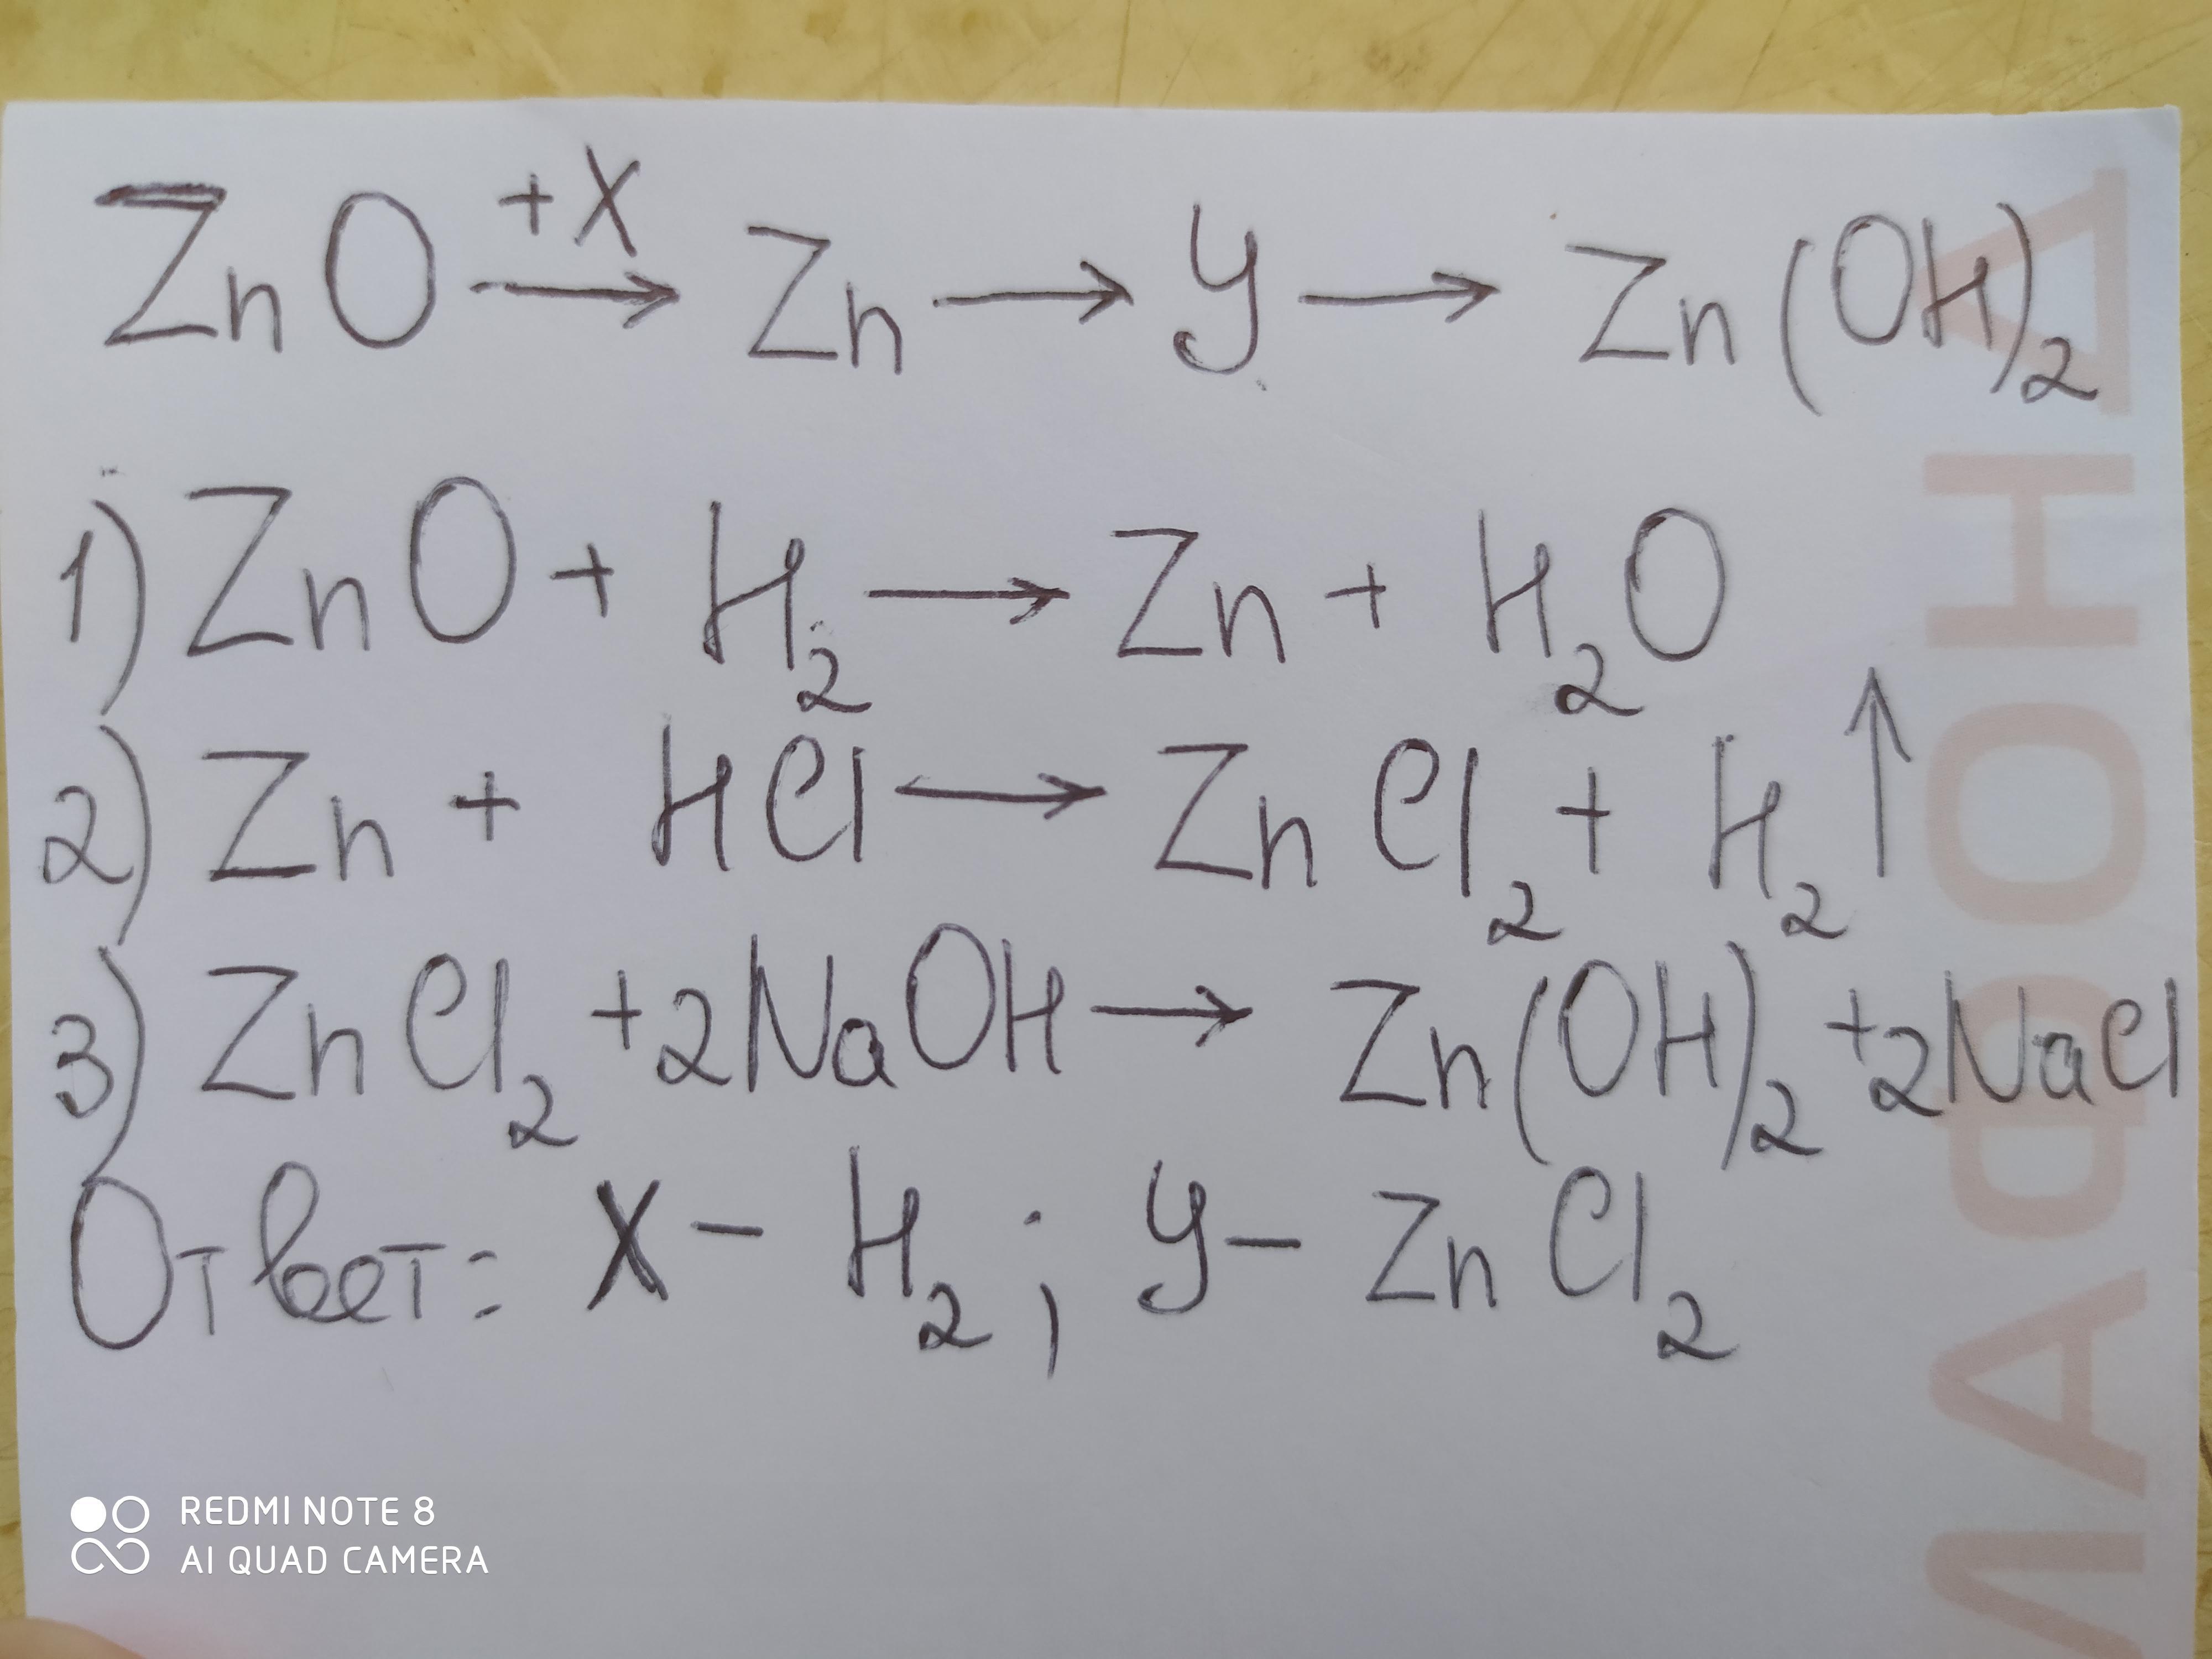 ZnO +X → Zn → Y → Zn(OH)₂
1) ZnO + H₂ → Zn + H₂O
2) Zn + HCl → ZnCl₂ + H₂↑
3) ZnCl₂ +2NaOH → Zn(OH)₂ +2NaCl
Ответ: X - H₂; Y - ZnCl₂
REDMI NOTE 8
AI QUAD CAMERA